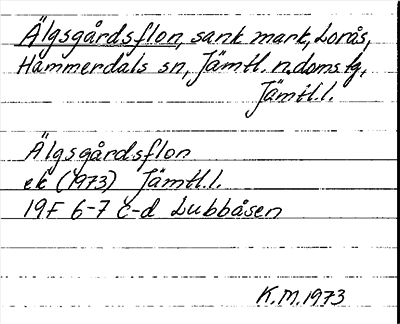 Älgsgårdsflon, sank mark, Lorås,
Hammerdals sn, Jämtl. n. doms. tg,
Jämtl. l.
Älgsgårdsflon
ek (1973) Jämtl. l.
19F 6-7 c-d Lubbåsen
K.M. 1973